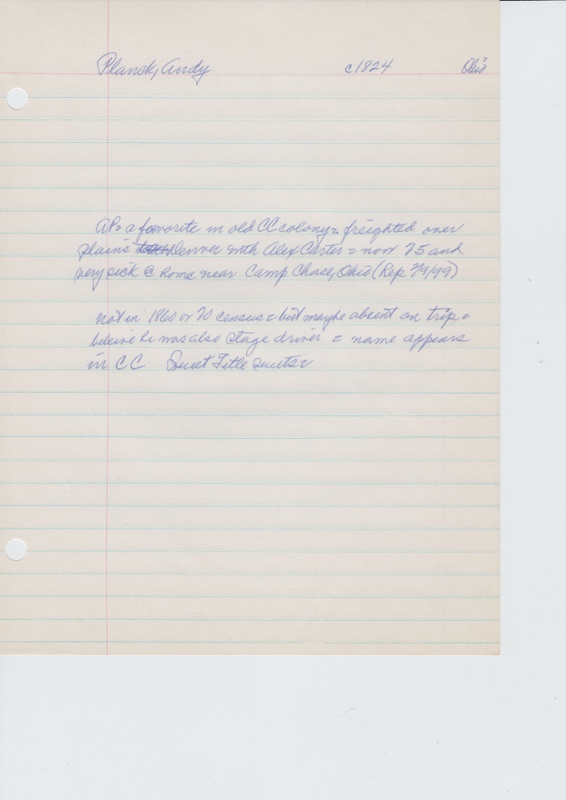 Planck, Andy c1824 Ohio?
AP = a favorite in old CC colony = freighted over
plains Denver with Alex Carter = now 75 and
very sick @ home near Camp Chase, Ohio (Rep 7/9/99)
not in 1860 or 70 census = but maybe absent on trip =
beleive he was also stage driver = name appears
in CC Quiet Title suits =